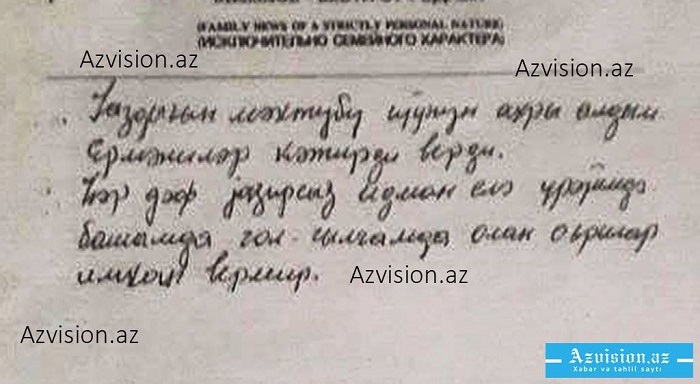 (FAMILY NEWS OF A STRICTLY PERSONAL NATURE)
(ИСКЛЮЧИТЕЛЬНО СЕМЕЙНОГО ХАРАКТЕРА)
Azvision.az
Azvision.az
Јаздығын мәктубу ијунун ахры алдым.
Ермәниләр кәтирди верди.
Һәр дәф јазырсыз идман елә
башымда гол-гылчамда олан ағрылар
имкан вермир.
Azvision.az
Azvision.az
Azvision.az
Xəbər və təhlil saytı